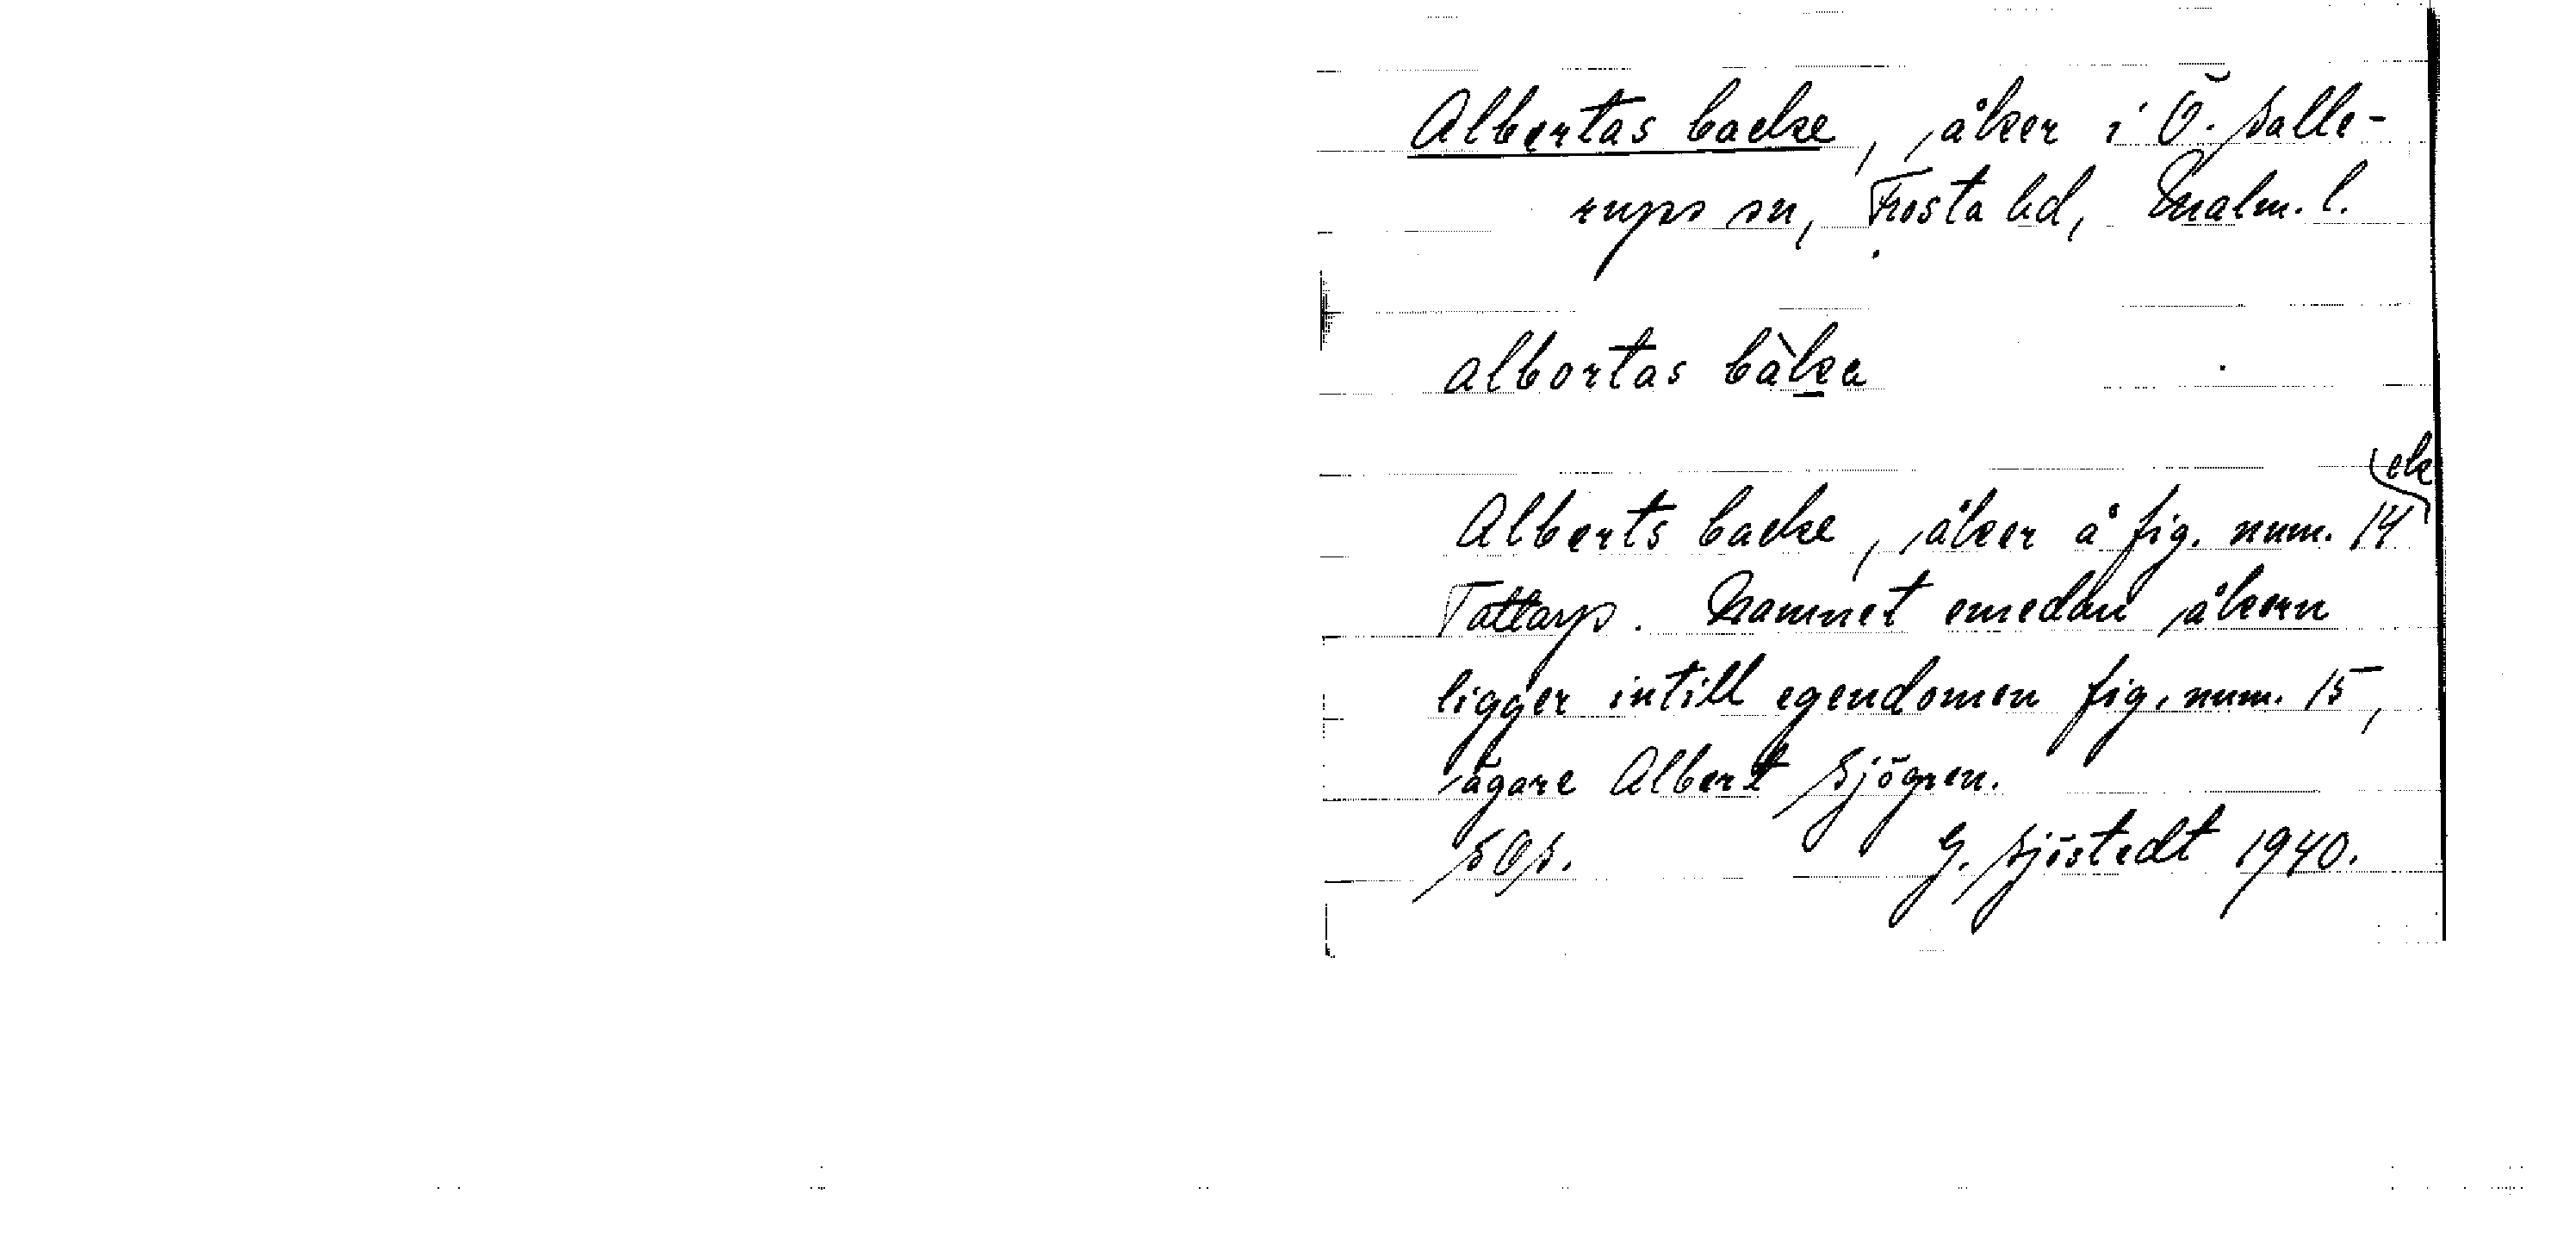 Albertas backe, åker i Ö. Salle-
rups sn, Frosta hd, Malm. l.
albortas bàka
ek
Alberts backe, åker å fig. num. 14
Tattarp. Namnet emedan åkern
ligger intill egendomen fig. num. 15,
ägare Albert Sjögren.
SOS. G. Sjöstedt 1940.